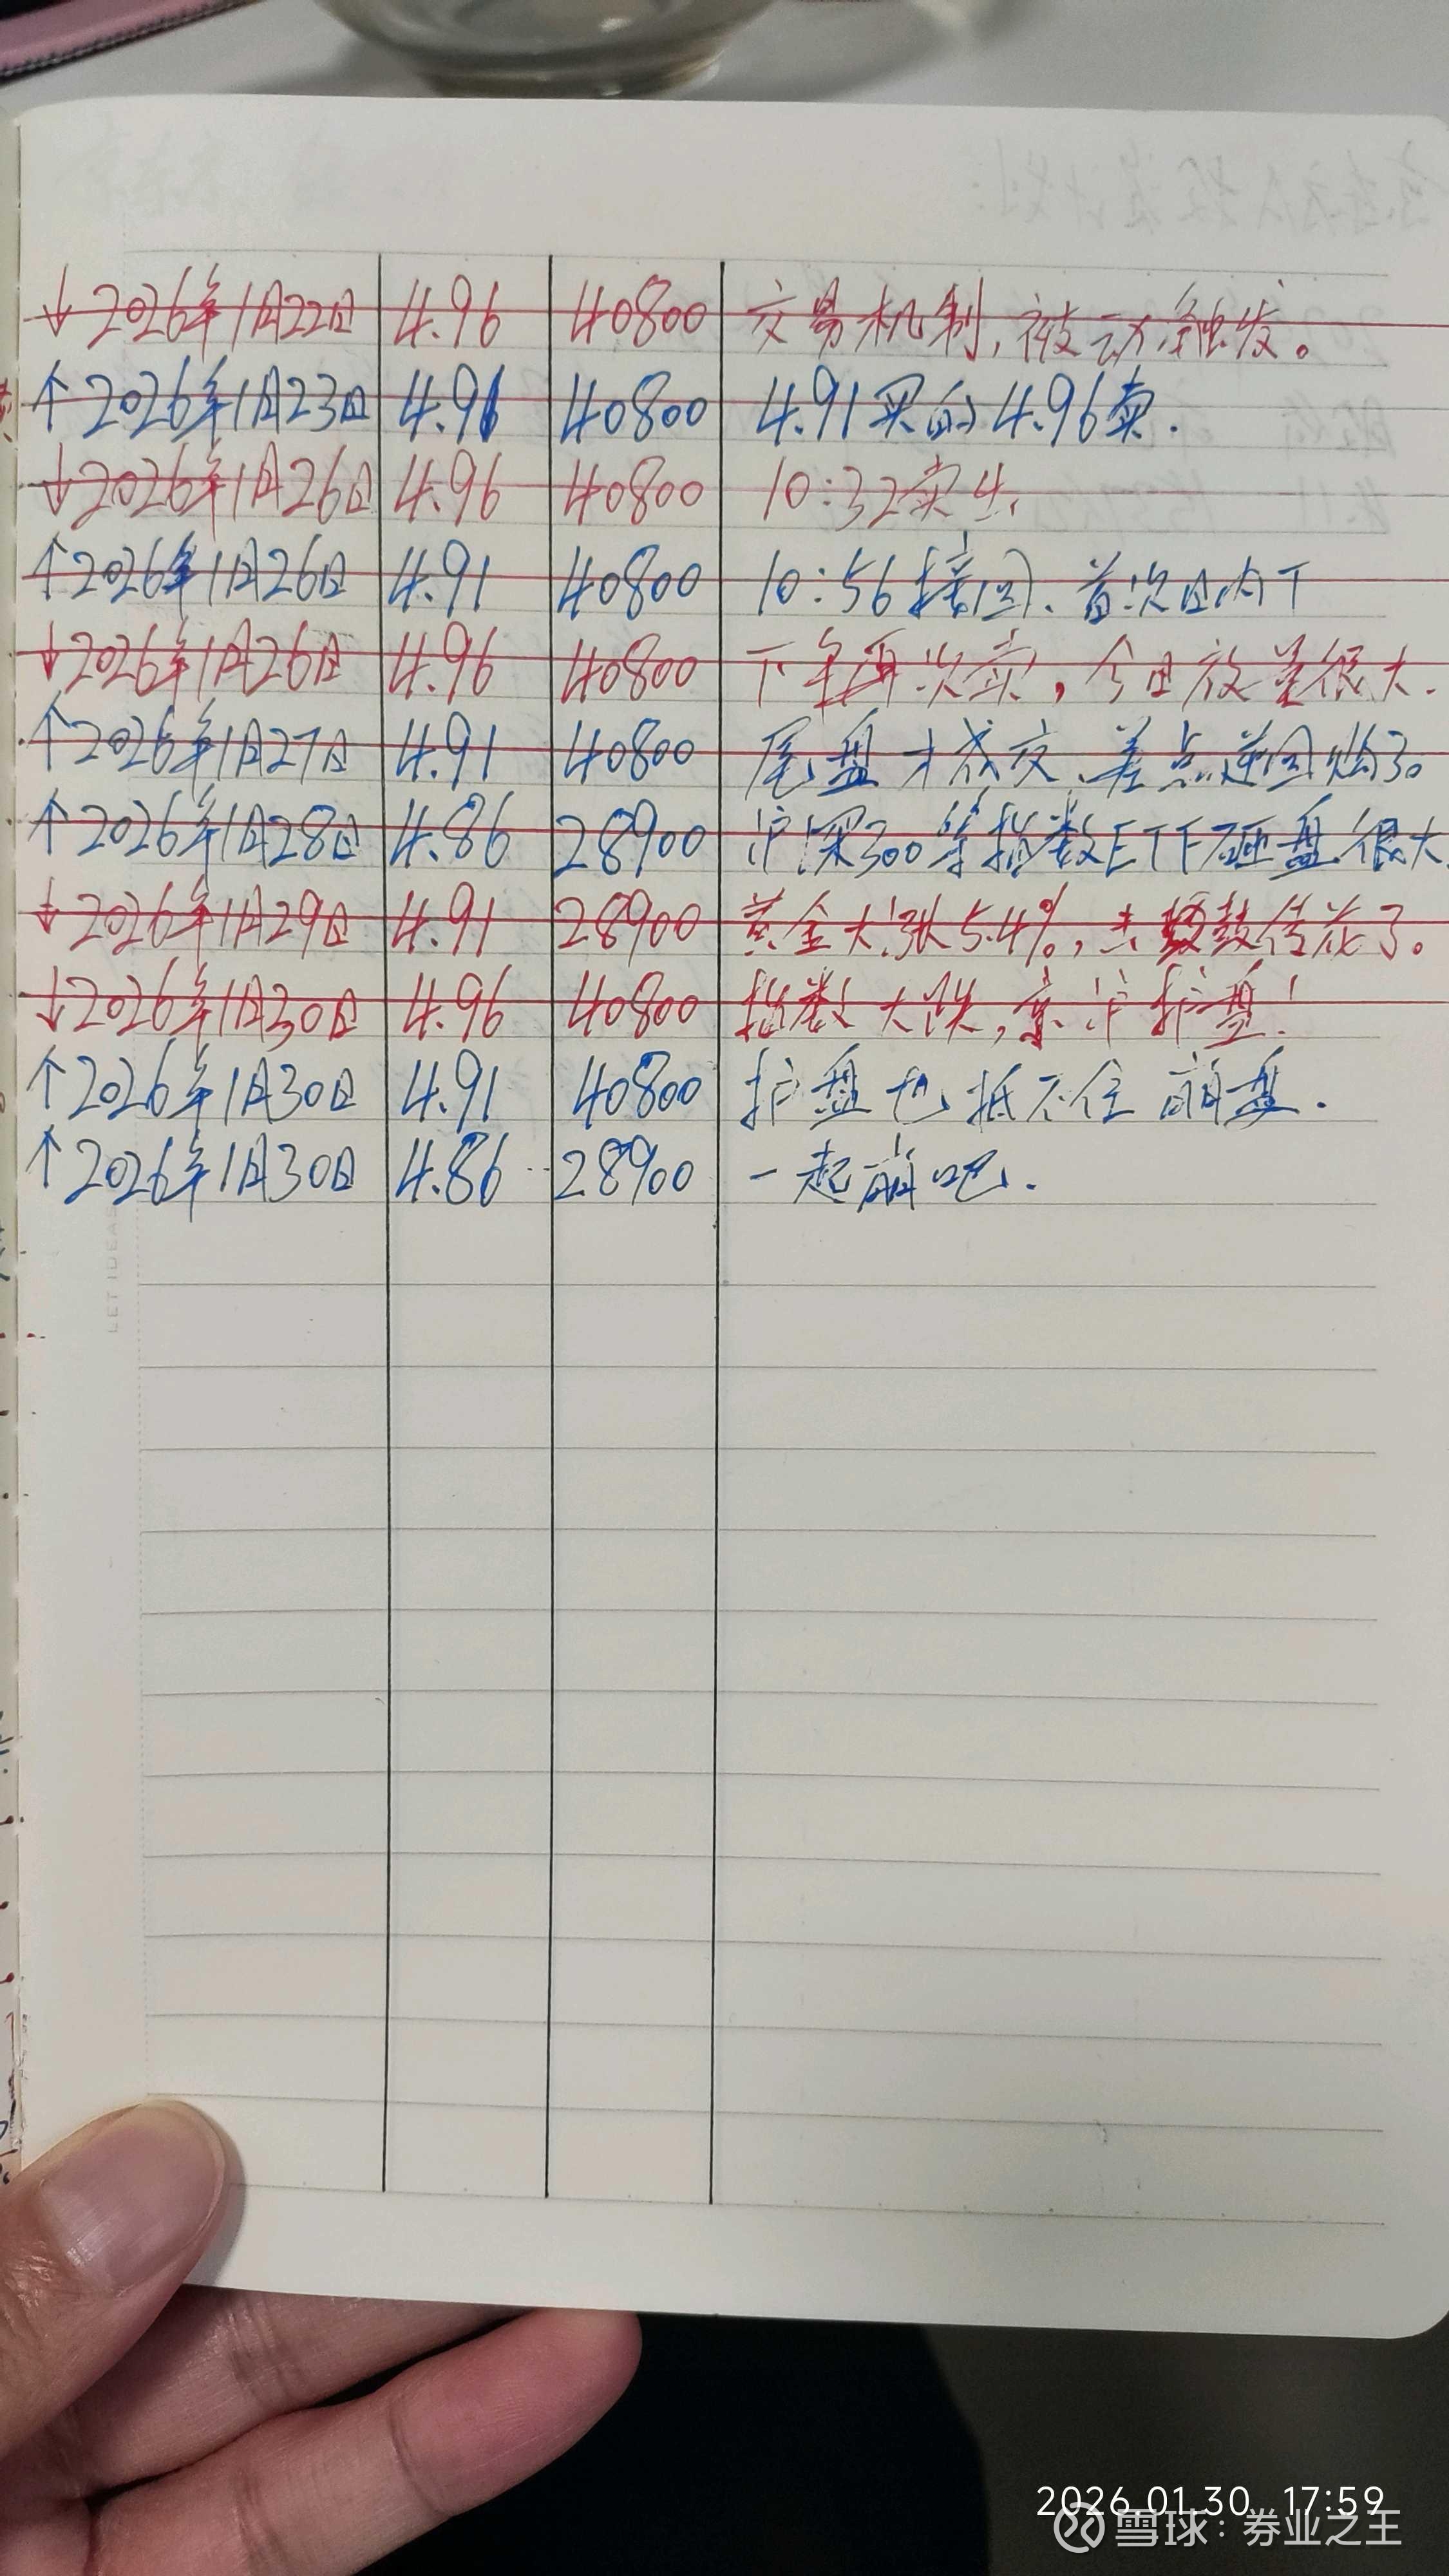 ↓2026年1月22日 4.96 40800 交易机制,被动触发。
↑2026年1月23日 4.91 40800 4.91买的4.96卖.
↓2026年1月26日 4.96 40800 10:32卖出
↑2026年1月26日 4.91 40800 10:56接回、首次日内T
↓2026年1月26日 4.96 40800 下午再次卖,今日波差很大.
↑2026年1月27日 4.91 40800 尾盘才成交、差点逆回购了。
↑2026年1月28日 4.86 28900 沪深300等指数ETF砸盘很大.
↓2026年1月29日 4.91 28900 黄金大涨5.4%,击鼓传花了。
↓2026年1月30日 4.96 40800 指数大跌,京沪护盘!
↑2026年1月30日 4.91 40800 护盘也抵不住崩盘.
↑2026年1月30日 4.86 28900 一起崩吧.
2026.01.30 17:59
雪球:券业之王